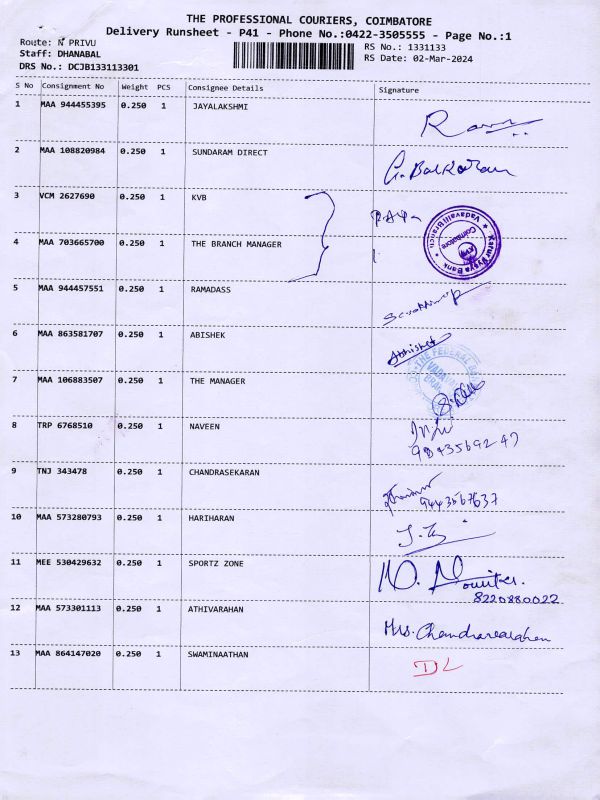 THE PROFESSIONAL COURIERS, COIMBATORE
Delivery Runsheet - P41 - Phone No.:0422-3505555 - Page No.:1
Route: N PRIVU RS No.: 1331133
Staff: DHANABAL RS Date: 02-Mar-2024
DRS No.: DCJB133113301
S No Consignment No Weight PCS Consignee Details Signature
1 MAA 944455395 0.250 1 JAYALAKSHMI
2 MAA 108820984 0.250 1 SUNDARAM DIRECT G. Baskaran
3 VCM 2627690 0.250 1 KVB
Karur Vysya Bank Vadavalli Branch Coimbatore
4 MAA 703665700 0.250 1 THE BRANCH MANAGER
5 MAA 944457551 0.250 1 RAMADASS
6 MAA 863581707 0.250 1 ABISHEK Abhishek
THE FEDERAL
7 MAA 106883507 0.250 1 THE MANAGER
8 TRP 6768510 0.250 1 NAVEEN
9843569247
9 TNJ 343478 0.250 1 CHANDRASEKARAN
9443567637
10 MAA 573280793 0.250 1 HARIHARAN
11 MEE 530429632 0.250 1 SPORTZ ZONE
8220880022
12 MAA 573301113 0.250 1 ATHIVARAHAN Mrs. Chandrasekaran
13 MAA 864147020 0.250 1 SWAMINAATHAN DL